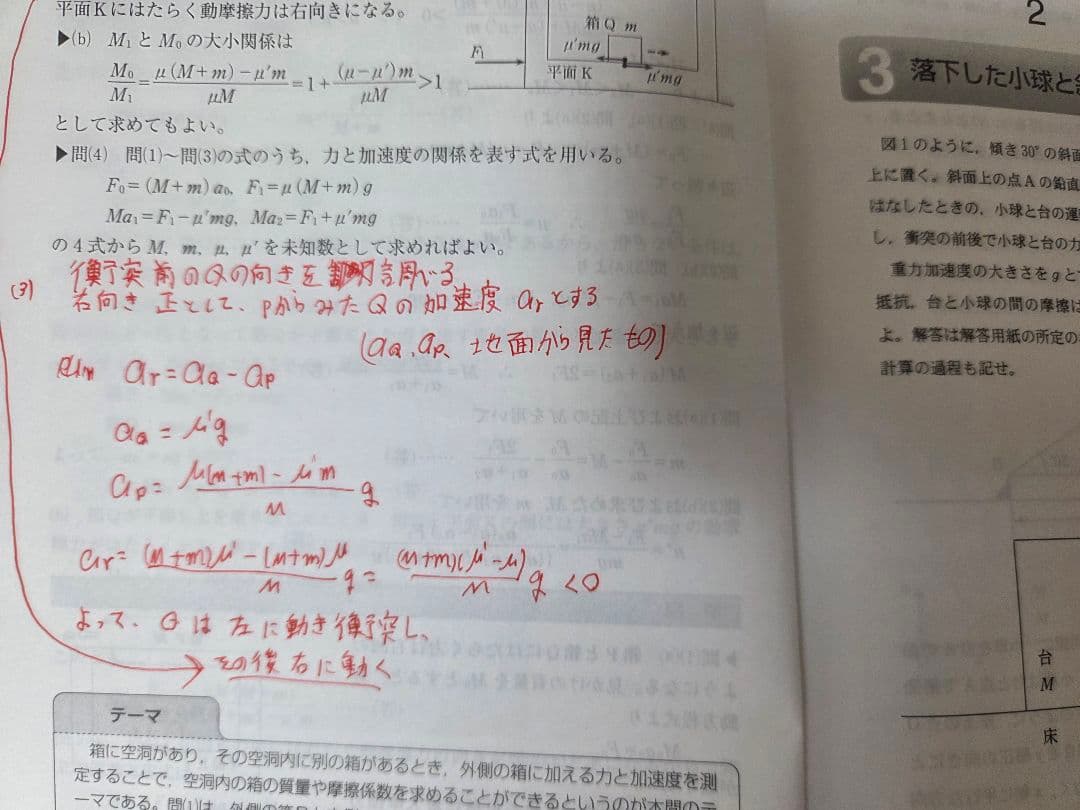 平面Kにはたらく動摩擦力は右向きになる。
▶(b) M₁とM₀の大小関係は
M₀/M₁=μ(M+m)-μ'm/μM=1+(μ-μ')m/μM>1
として求めてもよい。
▶問(4) 問(1)~問(3)の式のうち,力と加速度の関係を表す式を用いる。
F₀=(M+m)a₀, F₁=μ(M+m)g
Ma₁=F₁-μ'mg, Ma₂=F₁+μ'mg
の4式からM, m, μ, μ'を未知数として求めればよい。
箱Q m
μ'mg
F₁
平面K
μ'mg
(3) 衝突前のQの向きを
右向き正として、PからみたQの加速度 arとする
(aQ, aP、地面から見たもの)
ar=aQ-aP
aQ=μ'g
aP=μ(M+m)-μ'm/M g
ar=(M+m)μ'-(M+m)μ/M g=(M+m)(μ'-μ)/M g<0
よって、Qは左に動き衝突し、
その後右に動く
テーマ
箱に空洞があり,その空洞内に別の箱があるとき,外側の箱に加える力と加速度を測
定することで,空洞内の箱の質量や摩擦係数を求めることができるというのが本問のテ
ーマである。問(1)は,外側の
2
3 落下した小球と
図1のように,傾き30°の斜面
上に置く。斜面上の点Aの鉛直
はなしたときの,小球と台の運
し,衝突の前後で小球と台の力
重力加速度の大きさをgと
抵抗,台と小球の間の摩擦は
よ。解答は解答用紙の所定の
計算の過程も記せ。
台
M
床